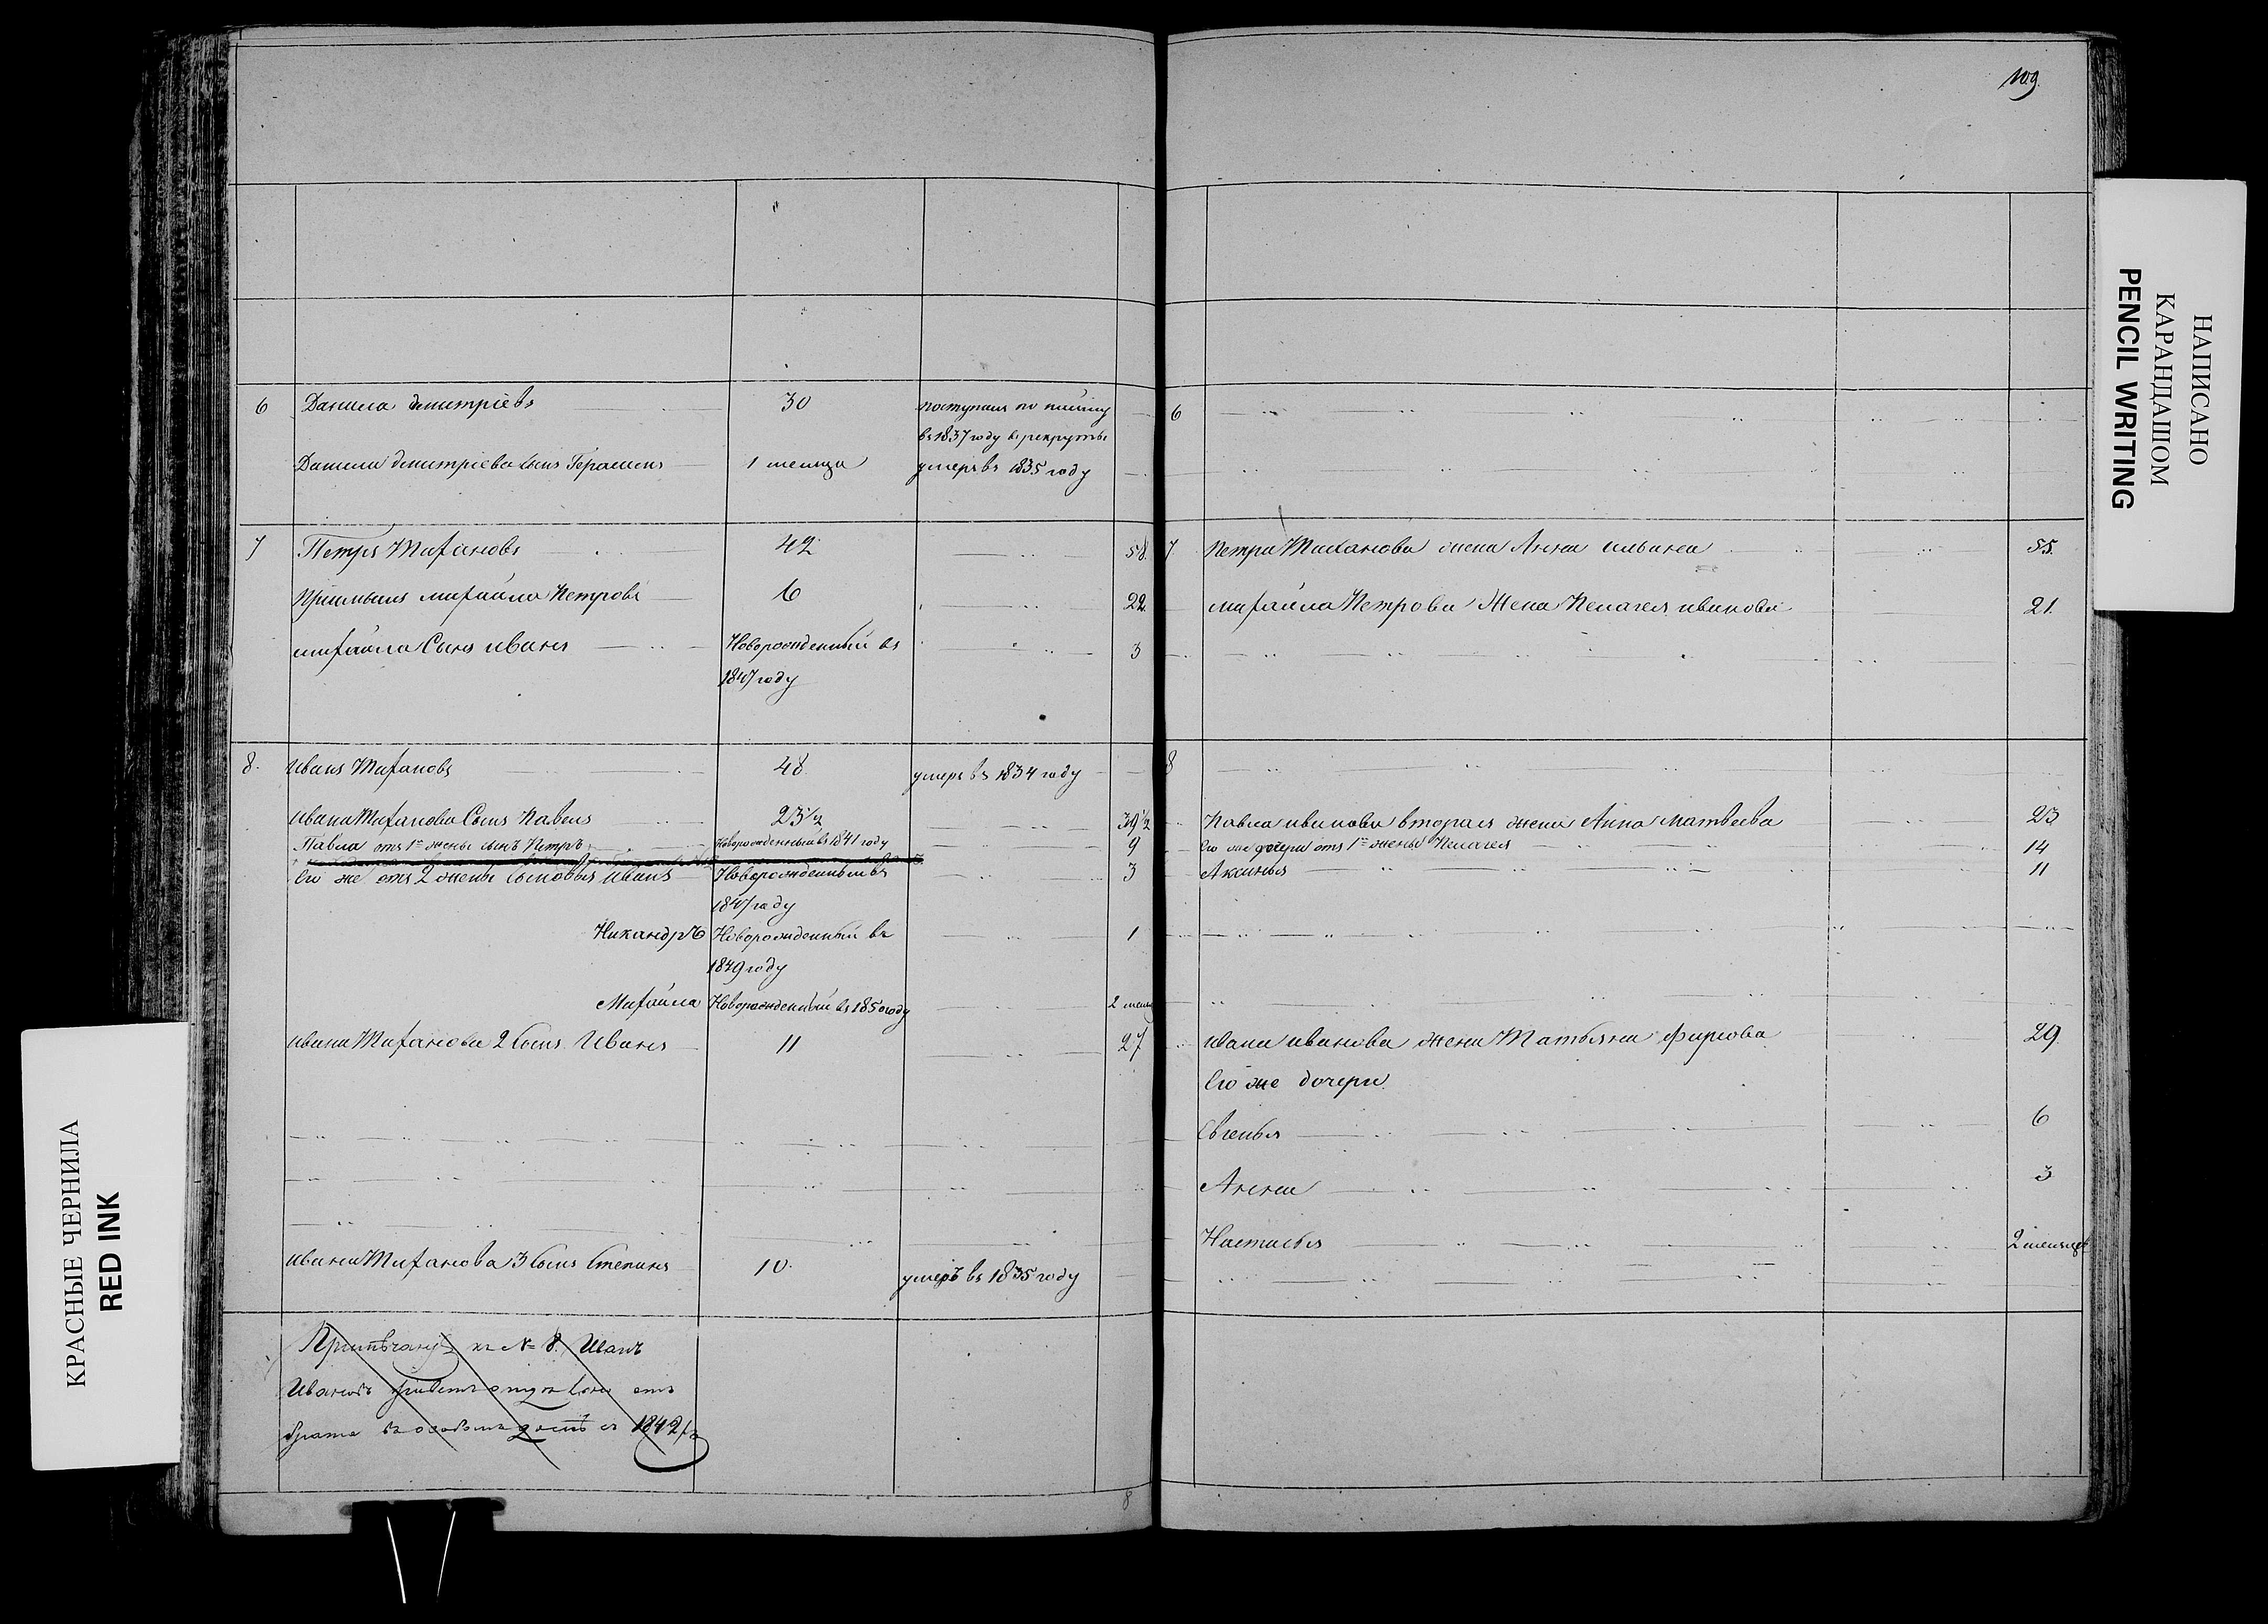 109.
6 Данила дмитріевъ 30 поступилъ по найму
въ 1837 году въ рекруты
Данила дмитріева сынъ Герасимъ 1 месяца умеръ въ 1835 году
6
7 Петръ Тихановъ 42 58.
Пріимышъ михайла Петровъ 6 22.
михайла Сынъ иванъ Новорожденный въ 3
1847 году
7 Петра Тиханова жена Анна ильина 55.
михайла Петрова Жена Пелагея иванова 21.
8. Иванъ Тихановъ 48. умеръ въ 1834 году
Ивана Тиханова Сынъ Павелъ 23 1/2 39 1/2
Павла отъ 1й жены сынъ Петръ Новорожденный въ 1841 году 9
Его же отъ 2 жены сыновья иванъ Новорожденный въ 3
1847 году
Никандръ Новорожденный въ 1
1849 году
Михайла Новорожденный въ 1850 году 2 месяц
ивана Тиханова 2 сынъ Иванъ 11 27
ивана Тиханова 3 сынъ Степанъ 10. умеръ въ 1835 году
8
Павла иванова вторая жена Анна Матвеева 23
Его же дочери отъ 1й жены Пелагея 14
Аксинья 11
ивана иванова жена Татьяна Фирсова 29.
Его же дочери
Евгенья 6
Анна 3
Настасья 2 месяца
къ № 8. Иванъ
Ивановъ
брата въ 1842 г
8
НАПИСАНО
КАРАНДАШОМ
PENCIL WRITING
КРАСНЫЕ ЧЕРНИЛА
RED INK